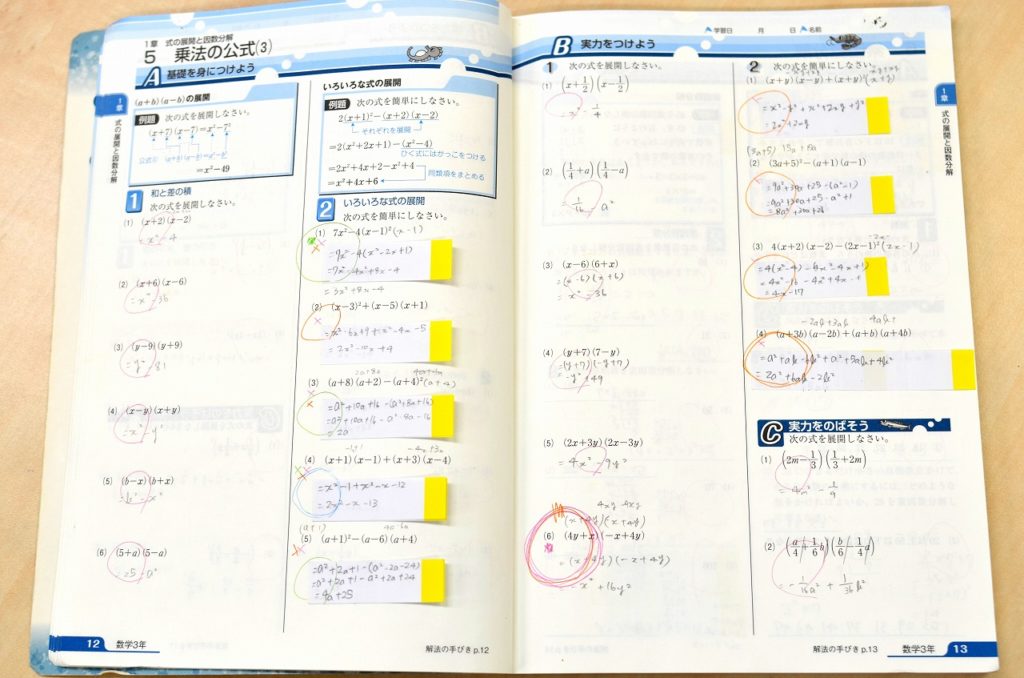 1章 式の展開と因数分解
5 乗法の公式(3)
A 基礎を身につけよう
1章
式の展開と因数分解
(a+b)(a−b)の展開
例題 次の式を展開しなさい。
(x+7)(x−7)=x²−7²
=x²−49
1 和と差の積
次の式を展開しなさい。
(1) (x+2)(x−2)
=x²−4
(2) (x+6)(x−6)
=x²−36
(3) (y−9)(y+9)
=y²−81
(4) (x−y)(x+y)
=x²−y²
(5) (b−x)(b+x)
=b²−x²
(6) (5+a)(5−a)
=25−a²
いろいろな式の展開
例題 次の式を簡単にしなさい。
2(x+1)²−(x+2)(x−2)
それぞれを展開
=2(x²+2x+1)−(x²−4)
ひく式にはかっこをつける
=2x²+4x+2−x²+4
同類項をまとめる
=x²+4x+6
2 いろいろな式の展開
次の式を簡単にしなさい。
(1) 7x²−4(x−1)²(x−1)
=7x²−4(x²−2x+1)
=7x²−4x²+8x−4
=3x²+8x−4
(2) (x−3)²+(x−5)(x+1)
=x²−6x+9+x²−4x−5
=2x²−10x+4
(3) (a+8)(a+2)−(a+4)²(a+4)
=a²+10a+16−(a²+8a+16)
=a²+10a+16−a²−8a−16
=2a
(4) (x+1)(x−1)+(x+3)(x−4)
=x²−1+x²−x−12
=2x²−x−13
(a+1)
(5) (a+1)²−(a−6)(a+4)
=a²+2a+1−(a²−2a−24)
=a²+2a+1−a²+2a+24
=4a+25
12 数学3年
解法の手びき p.12
学習日 月 日 名前
B 実力をつけよう
1 次の式を展開しなさい。
(1) (x+1/2)(x−1/2)
=x²−1/4
(2) (1/4+a)(1/4−a)
=1/16−a²
(3) (x−6)(6+x)
=(x−6)(x+6)
=x²−36
(4) (y+7)(7−y)
=(y+7)(−y+7)
=−y²+49
(5) (2x+3y)(2x−3y)
=4x²−9y²
4xy−4xy
(x+4y)(x+4y)
(6) (4y+x)(−x+4y)
=(x+4y)(−x+4y)
=−x²+16y²
2 次の式を簡単にしなさい。
(1) (x+y)(x−y)+(x+y)²(x+y)
=x²−y²+x²+2xy+y²
=2x²+2xy
(3a+5) 15a+15a
(2) (3a+5)²−(a+1)(a−1)
=9a²+30a+25−(a²−1)
=9a²+30a+25−a²+1
=8a²+30a+26
(3) 4(x+2)(x−2)−(2x−1)²(2x−1)
=4(x²−4)−4x²−4x+1)
=4x²−16−4x²+4x−1
=4x−17
−2ab+3ab 4ab+
(4) (a+3b)(a−2b)+(a+b)(a+4b)
=a²+ab−6b²+a²+5ab+4b²
=2a²+6ab−2b²
C 実力をのばそう
次の式を展開しなさい。
(1) (2m−1/3)(1/3+2m)
=4m²−1/9
(2) (a/4+1/6b)(b/6−1/4a)
=−1/16a²+1/36b²
1章
式の展開と因数分解
解法の手びき p.13
数学3年 13